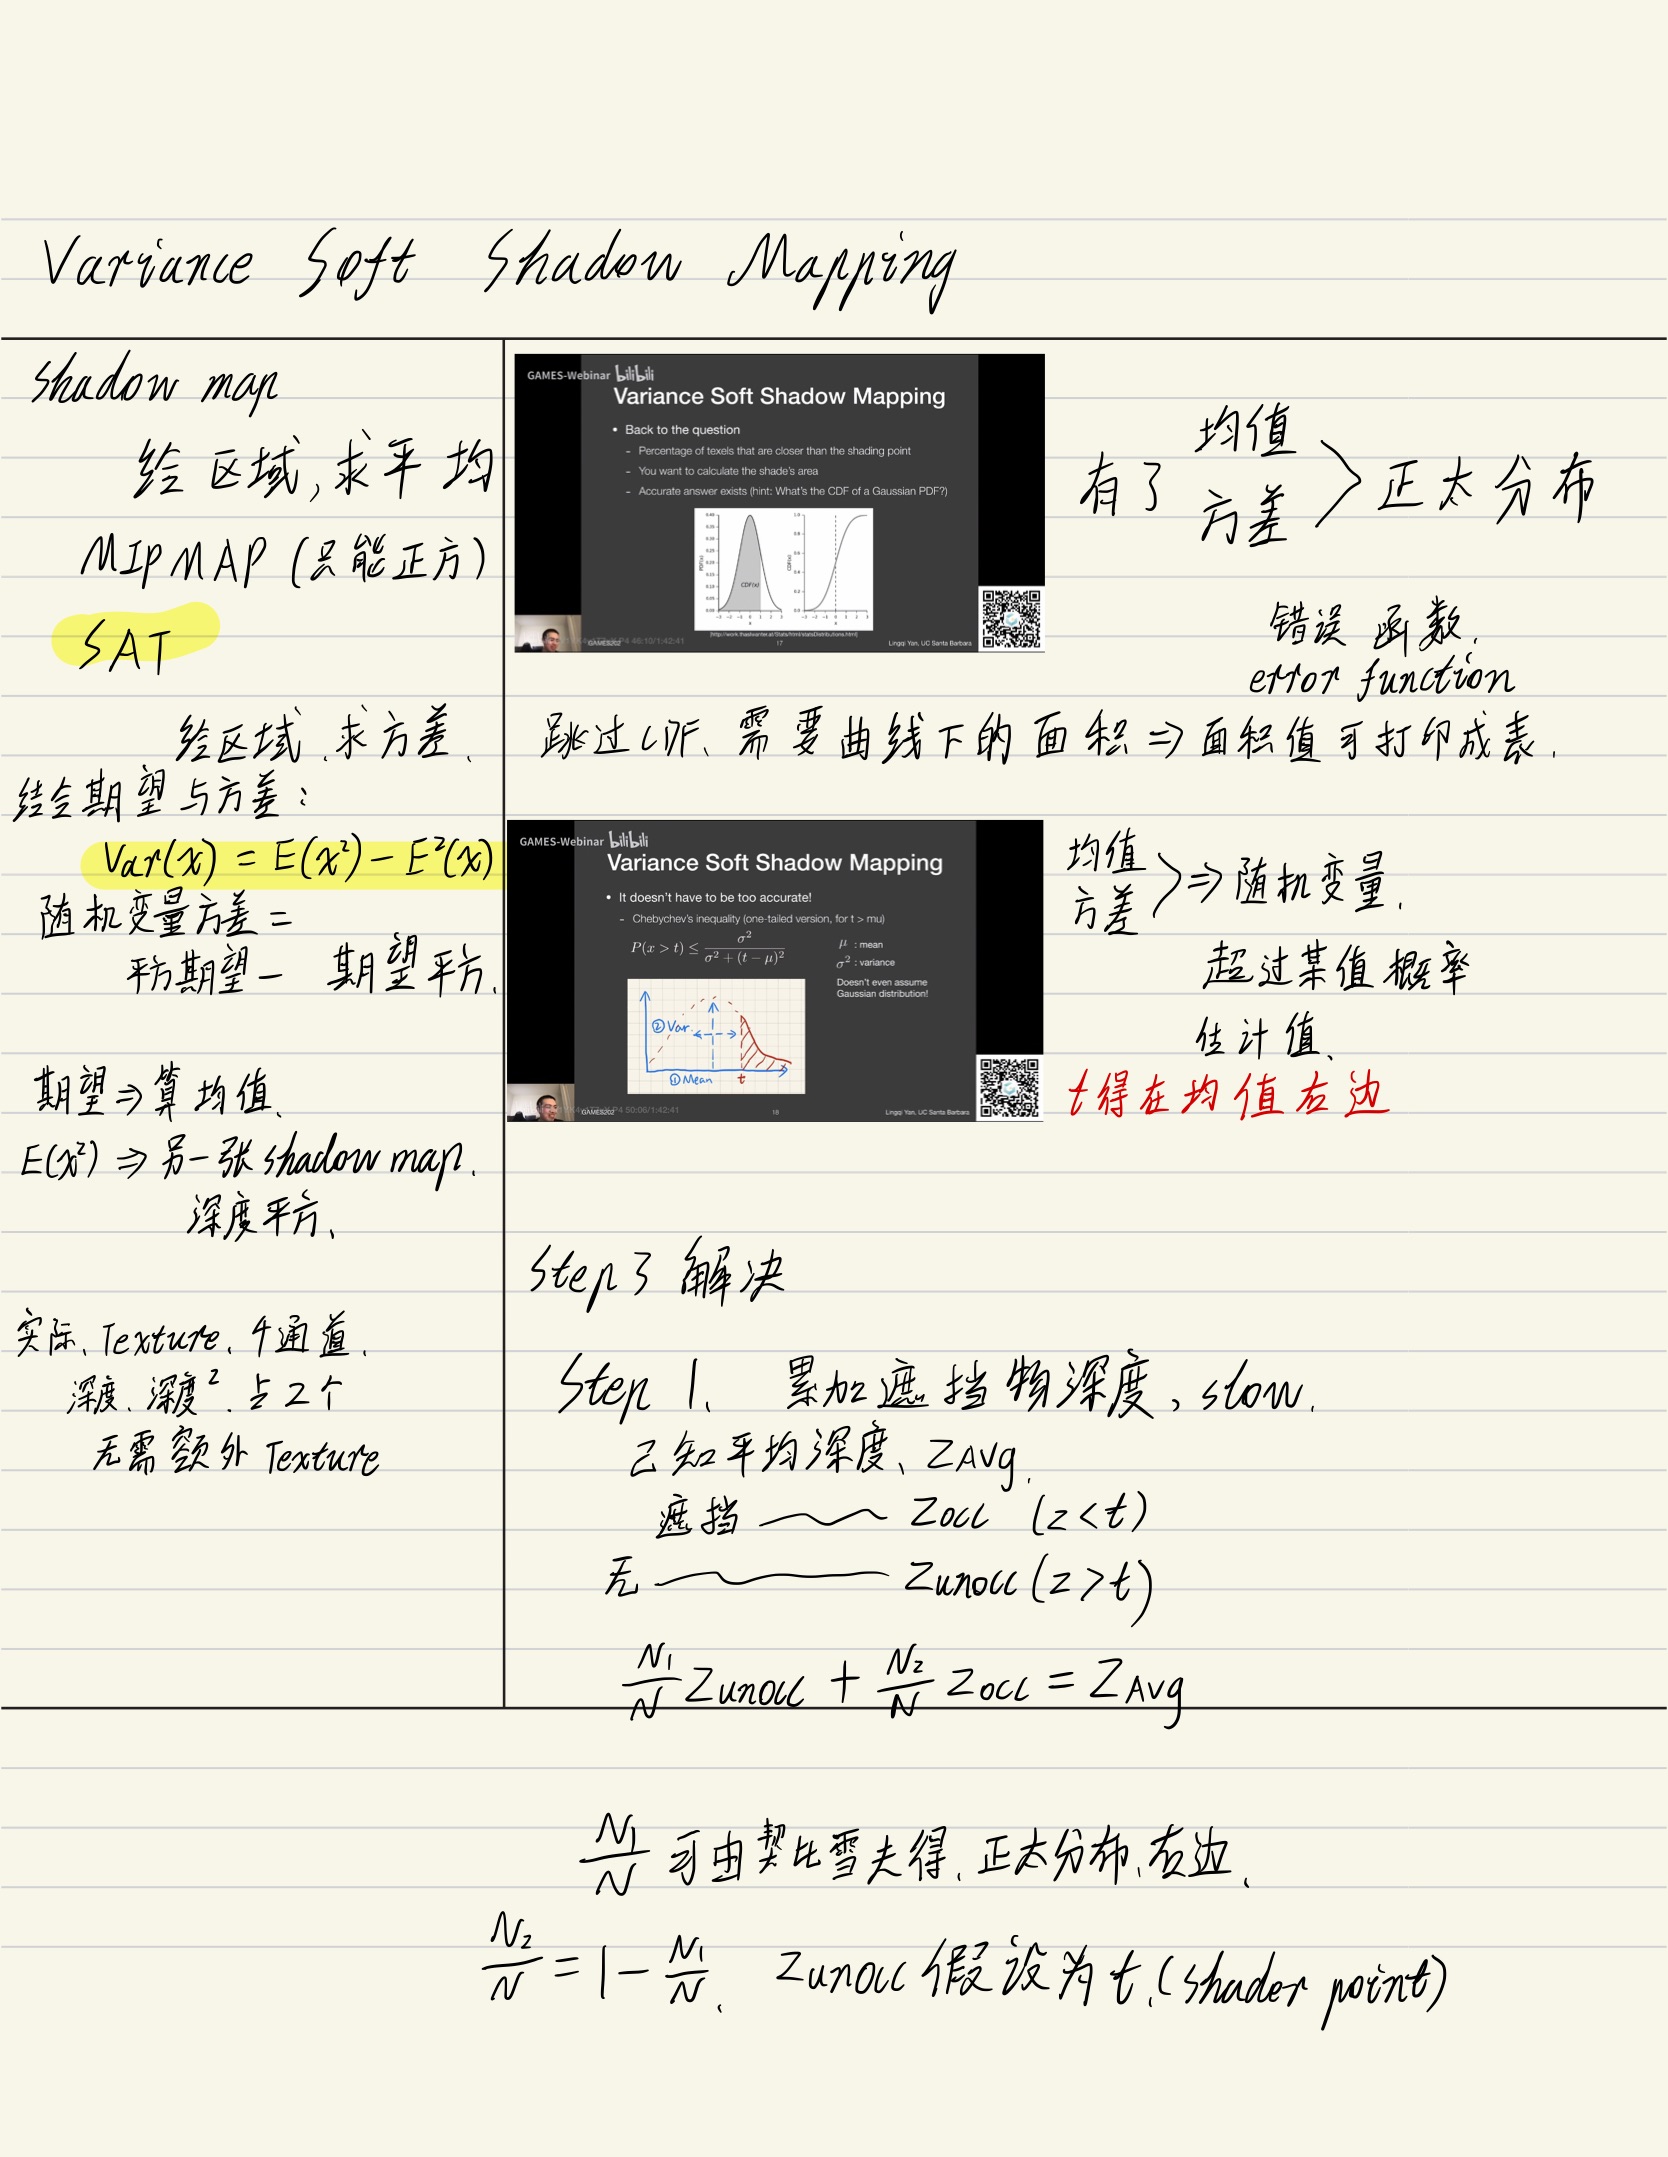 Variance Soft Shadow Mapping
shadow map
给区域,求平均
MIPMAP (只能正方)
SAT
给区域、求方差、
结合期望与方差:
Var(x) = E(x²) - E²(x)
随机变量方差 =
平方期望 - 期望平方、
期望 ⇒ 算均值、
E(x²) ⇒ 另一张 shadow map、
深度平方、
实际、Texture、4通道、
深度、深度²、占2个
无需额外 Texture
GAMES-Webinar bilibili
Variance Soft Shadow Mapping
• Back to the question
- Percentage of texels that are closer than the shading point
- You want to calculate the shade's area
- Accurate answer exists (hint: What's the CDF of a Gaussian PDF?)
CDF(x)
GAMES202
17
Lingqi Yan, UC Santa Barbara
有了 均值 方差 > 正太分布
错误函数、
error function
跳过CDF、需要曲线下的面积 ⇒ 面积值可打印成表、
GAMES-Webinar bilibili
Variance Soft Shadow Mapping
• It doesn't have to be too accurate!
- Chebychev's inequality (one-tailed version, for t > mu)
P(x > t) ≤ σ² / (σ² + (t − μ)²)
μ : mean
σ² : variance
Doesn't even assume
Gaussian distribution!
②Var
①Mean
t
GAMES202
18
Lingqi Yan, UC Santa Barbara
均值 方差 > ⇒ 随机变量、
超过某值概率
估计值、
t得在均值右边
Step 3 解决
Step 1、 累加遮挡物深度, slow、
已知平均深度、ZAvg、
遮挡 —— Zocc (z<t)
无 —— Zunocc (z>t)
N₁/N Zunocc + N₂/N Zocc = ZAvg
N₁/N 可由契比雪夫得、正太分布、右边、
N₂/N = 1 - N₁/N、 Zunocc 假设为 t、(shader point)